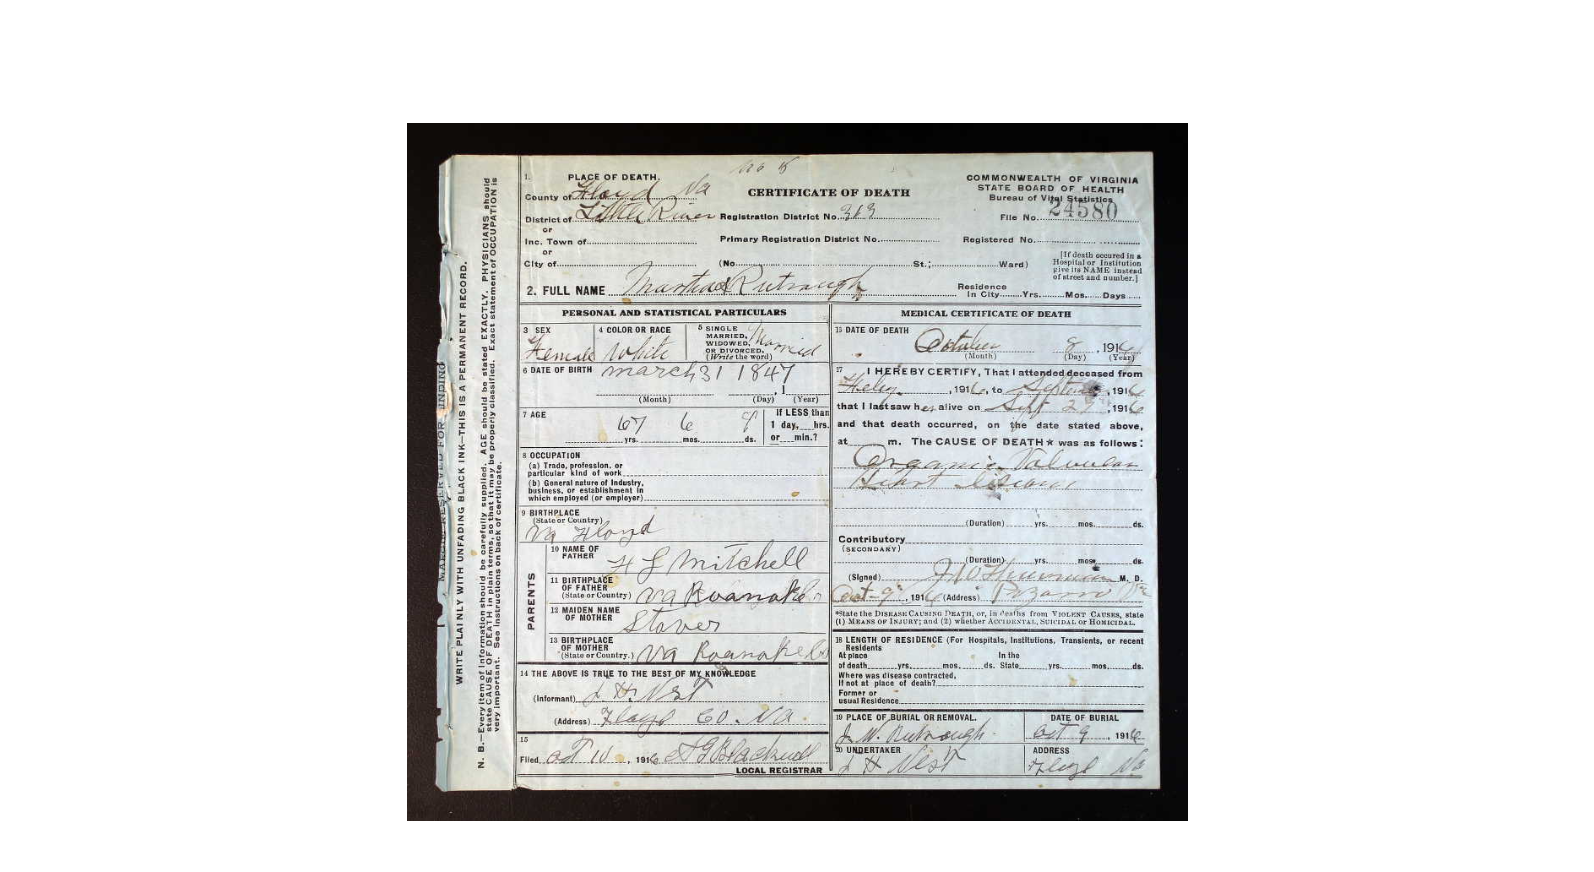 No 8
1. PLACE OF DEATH.
County of Floyd Va
District of Little River
or
Inc. Town of
or
City of
CERTIFICATE OF DEATH
Registration District No. 363
Primary Registration District No.
(No. St.; Ward)
COMMONWEALTH OF VIRGINIA
STATE BOARD OF HEALTH
Bureau of Vital Statistics
File No. 24580
Registered No.
[If death occured in a
Hospital or Institution
give its NAME instead
of street and number.]
2. FULL NAME Martha Rutrough
Residence
In City Yrs. Mos. Days
PERSONAL AND STATISTICAL PARTICULARS
3 SEX
Female
4 COLOR OR RACE
White
5 SINGLE
MARRIED,
WIDOWED,
OR DIVORCED.
(Write the word)
Married
6 DATE OF BIRTH march 31 1847
, 1
(Month) (Day) (Year)
7 AGE
67 6 8
yrs. mos. ds.
If LESS than
1 day, hrs.
or min.?
8 OCCUPATION
(a) Trade, profession, or
particular kind of work
(b) General nature of Industry,
business, or establishment in
which employed (or employer)
9 BIRTHPLACE
(State or Country)
Va Floyd
PARENTS
10 NAME OF
FATHER
Mitchell
11 BIRTHPLACE
OF FATHER
(State or Country)
Va Roanoke
12 MAIDEN NAME
OF MOTHER
Stover
13 BIRTHPLACE
OF MOTHER
(State or Country.)
Va Roanoke Co
14 THE ABOVE IS TRUE TO THE BEST OF MY KNOWLEDGE
(Informant) H
(Address) Floyd Co. Va.
15
Filed Oct 10, 1916
LOCAL REGISTRAR
MEDICAL CERTIFICATE OF DEATH
DATE OF DEATH
October 8, 1916
(Month) (Day) (Year)
17 I HEREBY CERTIFY, That I attended deceased from
, 1916, to , 1916
that I last saw her alive on Sept 29, 1916
and that death occurred, on the date stated above,
at m. The CAUSE OF DEATH★ was as follows:
Organic Valvular
Heart
(Duration) yrs. mos. ds.
Contributory
(SECONDARY)
(Duration) yrs. mos. ds.
(Signed) M. D.
Oct-9, 1916 (Address) Pizarro Va
*State the DISEASE CAUSING DEATH, or, in deaths from VIOLENT CAUSES, state
(1) MEANS OF INJURY; and (2) whether ACCIDENTAL, SUICIDAL or HOMICIDAL.
18 LENGTH OF RESIDENCE (For Hospitals, Institutions, Transients, or recent
Residents
At place In the
of death yrs. mos. ds. State yrs. mos. ds.
Where was disease contracted,
If not at place of death?
Former or
usual Residence
19 PLACE OF BURIAL OR REMOVAL.
W. Rutrough
DATE OF BURIAL
Oct 9, 1916
20 UNDERTAKER
H
ADDRESS
Floyd Va
MARGIN RESERVED FOR BINDING
WRITE PLAINLY WITH UNFADING BLACK INK—THIS IS A PERMANENT RECORD.
N. B.—Every item of information should be carefully supplied. AGE should be stated EXACTLY. PHYSICIANS should
state CAUSE OF DEATH in plain terms, so that it may be properly classified. Exact statement of OCCUPATION is
very important. See instructions on back of certificate.